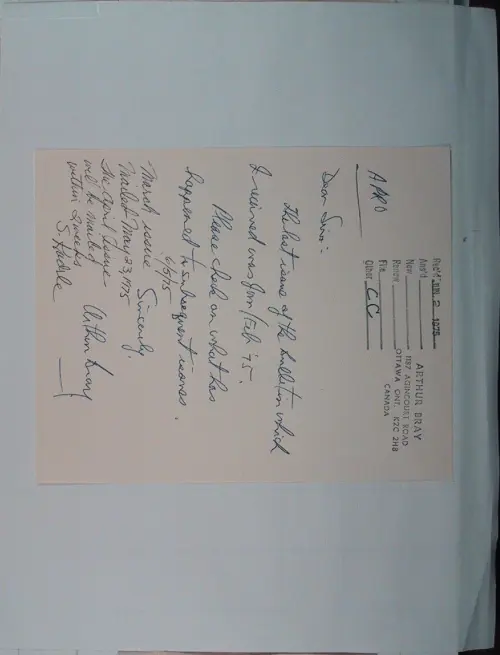 Rec'd JUN. 2 1975
Ans'd
New
Renew
File
Other C.C.
ARTHUR BRAY
1137 AGINCOURT ROAD
OTTAWA ONT. K2C 2H8
CANADA
APRO
Dear Sirs:
The last issue of the bulletin which
I received was Jan/Feb '75.
Please check on what has
happened to subsequent issues.
6/5/75
Sincerely,
Arthur Bray
March issue
Mailed May 23, 1975
The April issue
will be mailed
within 2 weeks
S.